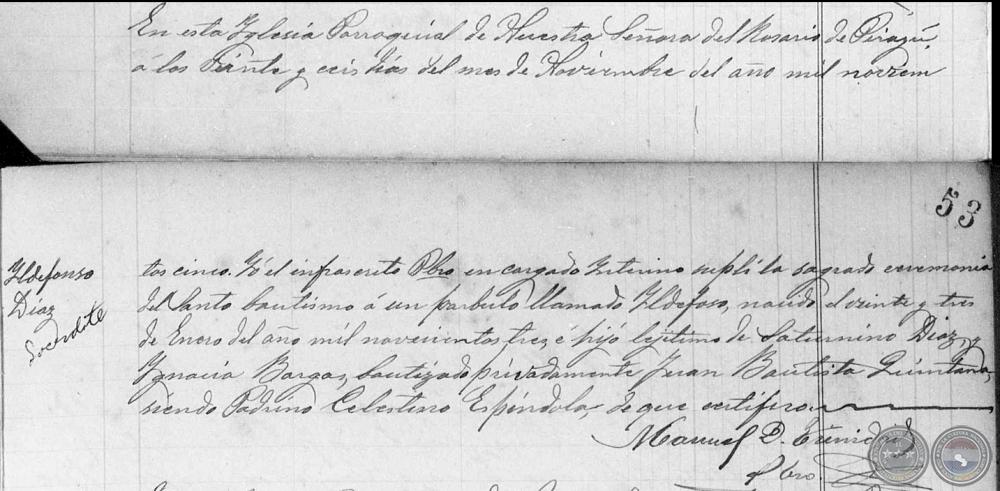 En esta Yglesia Parroquial de Nuestra Señora del Rosario de Pirayú,
á los veinte y seis dias del mes de Noviembre del año mil novecien
53
Yldefonso
Díaz
tos cinco. Yó el infrascrito Pbro encargado Ynterino suplí la sagrada ceremonia
del Santo bautismo á un parbulo llamado Yldefoso, nacido el veinte y tres
de Enero del año mil novecientos tres, é hijo lejitimo de Saturnino Diaz, y
Ygnacia Bargas, bautizado privadamente Juan Bautista Quintana,
siendo Padrino Celestino Espéndola, de que certifico.
Manuel D. Trinidad
Pbro.